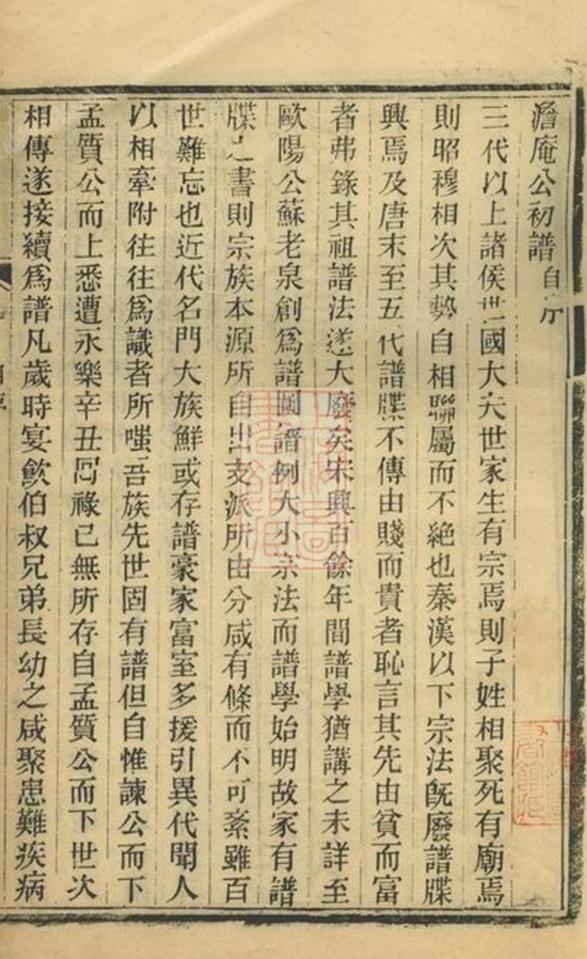 澹庵公初譜自序
三代以上諸侯世國大夫世家生有宗焉則子姓相聚死有廟焉
則昭穆相次其勢自相聯屬而不絕也秦漢以下宗法旣廢譜牒
興焉及唐末至五代譜牒不傳由賤而貴者恥言其先由貧而富
者弗錄其祖譜法遂大廢矣宋興百餘年間譜學猶講之未詳至
歐陽公蘇老泉創爲譜圖譜例大小宗法而譜學始明故家有譜
牒之書則宗族本源所自出支派所由分咸有條而不可紊雖百
世難忘也近代名門大族鮮或存譜豪家富室多援引異代聞人
以相牽附往往爲識者所嗤吾族先世固有譜但自惟諫公而下
孟質公而上悉遭永樂辛丑囘祿已無所存自孟質公而下世次
相傳遂接續爲譜凡歲時宴飮伯叔兄弟長幼之咸聚患難疾病